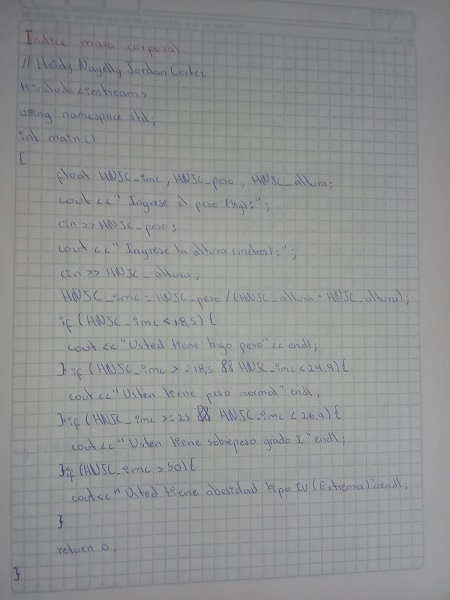 Indice masa corporal
// Heidy Nayelly Jordan Cortez
#include <iostream>
using namespace std;
int main()
{
float HNJC_imc, HNJC_peso, HNJC_altura;
cout << "Ingrese el peso (kg):";
cin >> HNJC_peso;
cout << "Ingrese la altura (metros):";
cin >> HNJC_altura;
HNJC_imc = HNJC_peso / (HNJC_altura * HNJC_altura);
if (HNJC_imc < 18,5) {
cout << "Usted tiene bajo peso" << endl;
} if (HNJC_imc >= 18,5 && HNJC_imc < 24.9) {
cout << "Usten tiene peso normal" endl;
} if (HNJC_imc >= 25 && HNJC_imc < 26,9) {
cout << "Usten tiene sobrepeso grado I" endl;
} if (HNJC_imc > 50) {
cout << "Usted tiene obesidad tipo IV (Extrema)" << endl;
}
return 0;
}